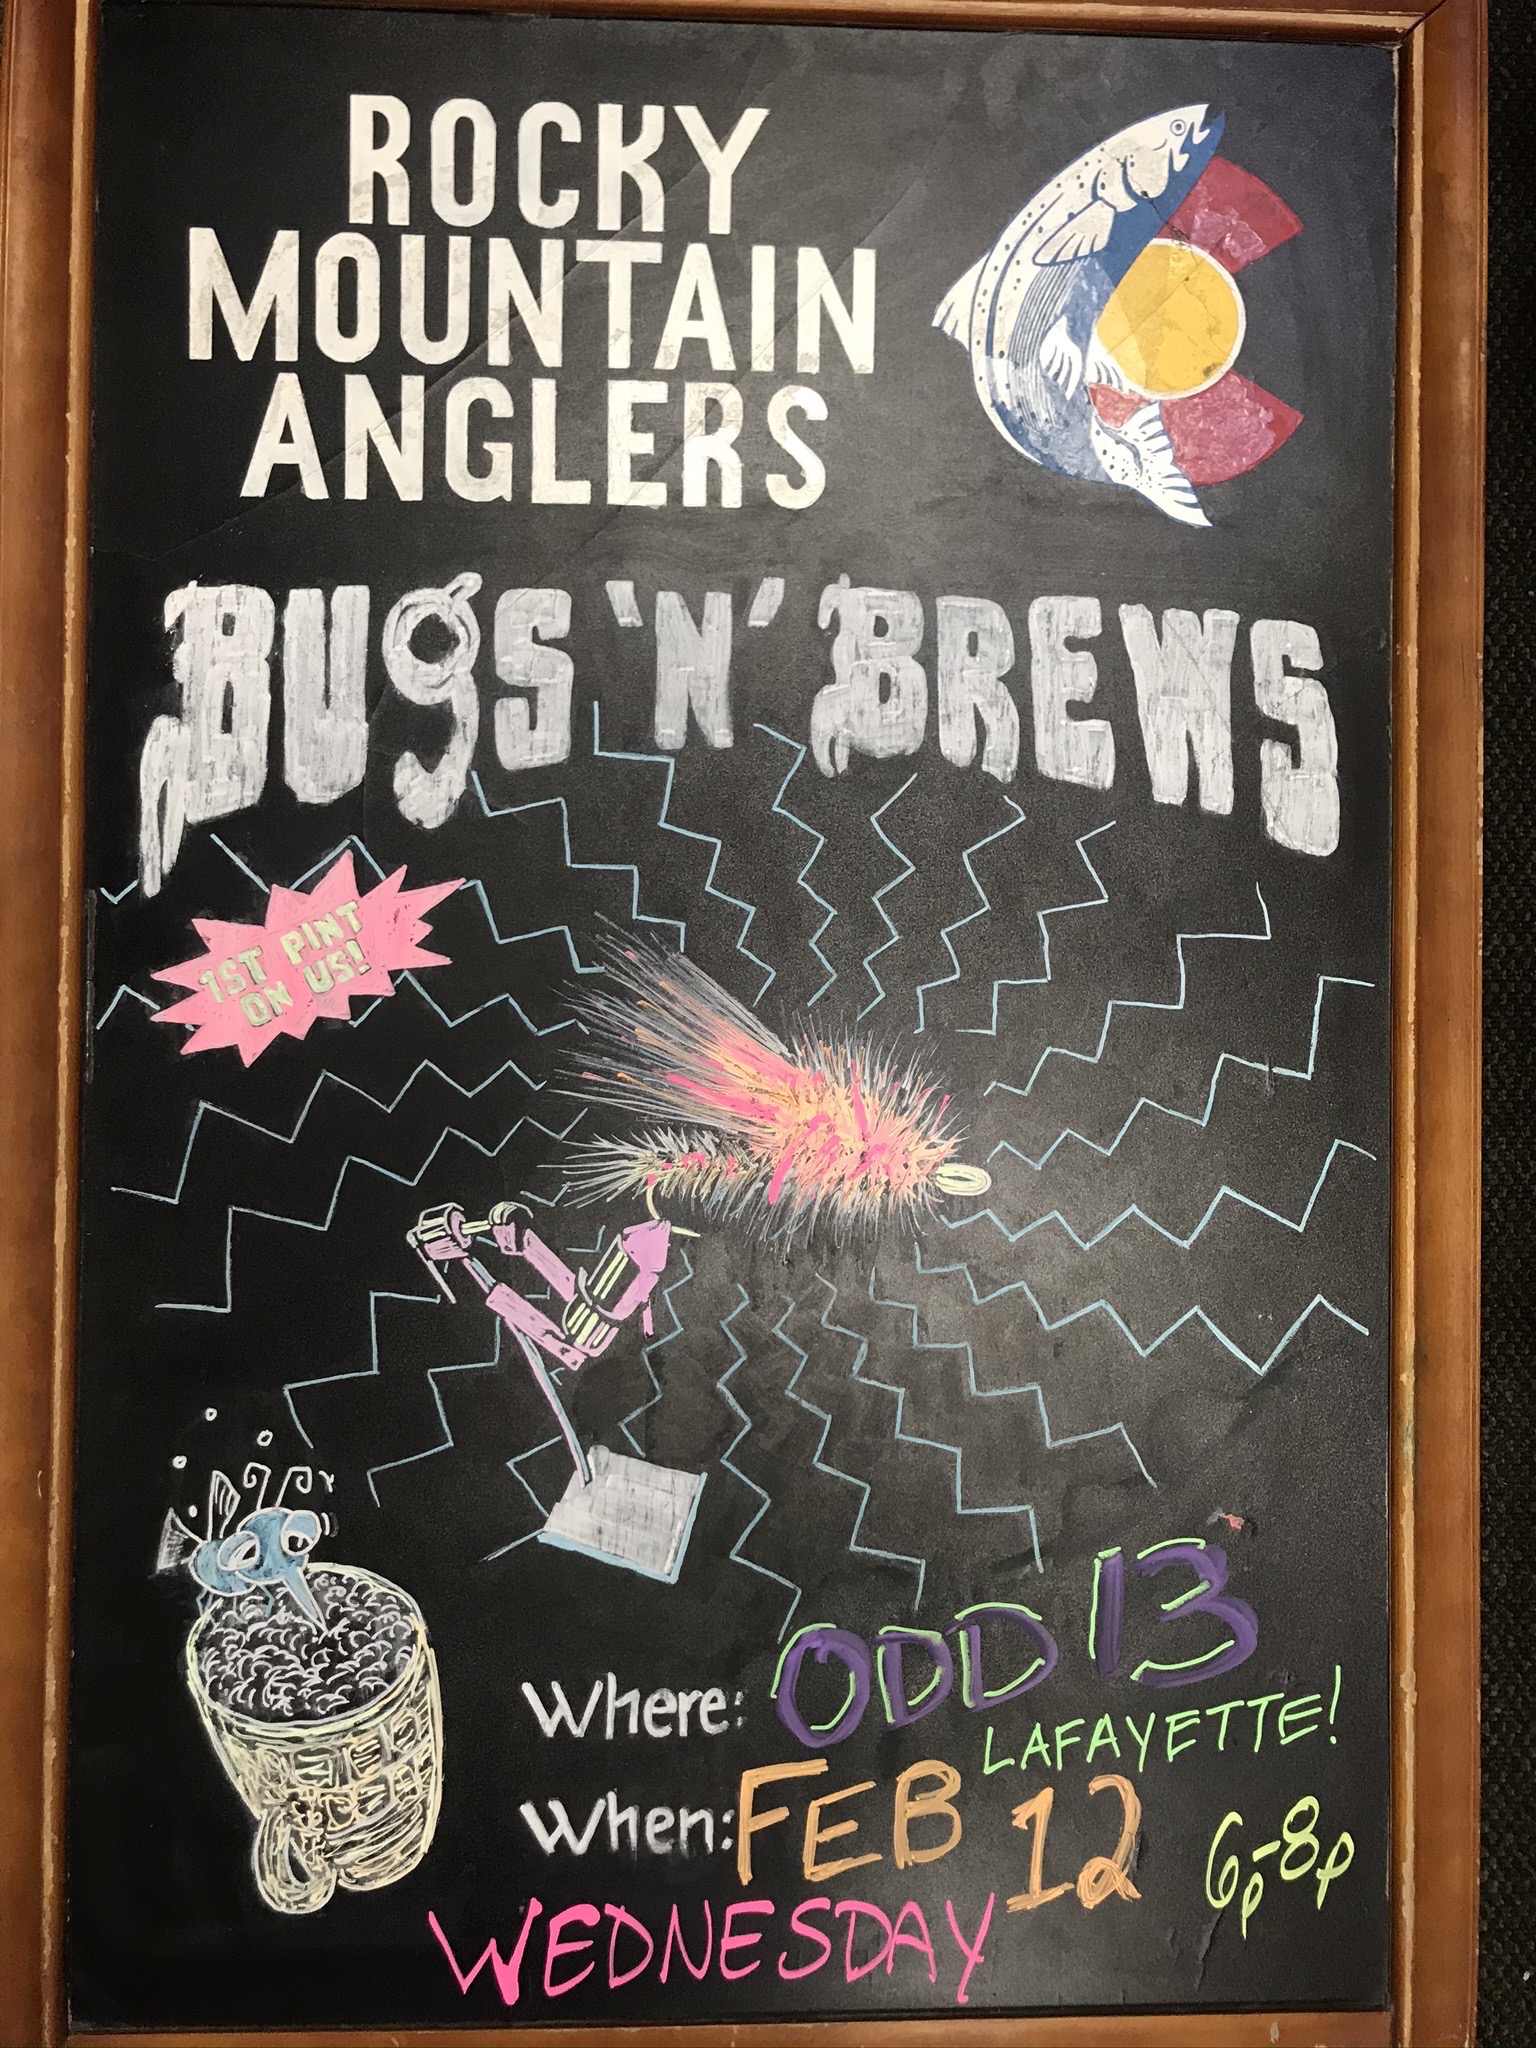 ROCKY
MOUNTAIN
ANGLERS
BUGS 'N' BREWS
1ST PINT
ON US!
Where: ODD 13
LAFAYETTE!
When: FEB 12 6p-8p
WEDNESDAY